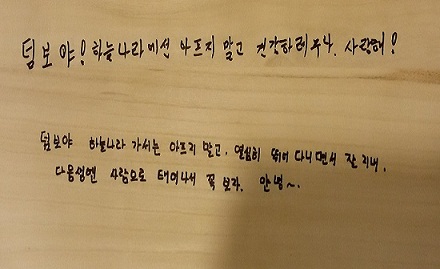 덤보야! 하늘나라에선 아프지 말고 건강하려무나. 사랑해!
덤보야 하늘나라 가서는 아프지 말고, 열심히 뛰어 다니면서 잘 지내.
다음생엔 사람으로 태어나서 꼭 보자. 안녕~.